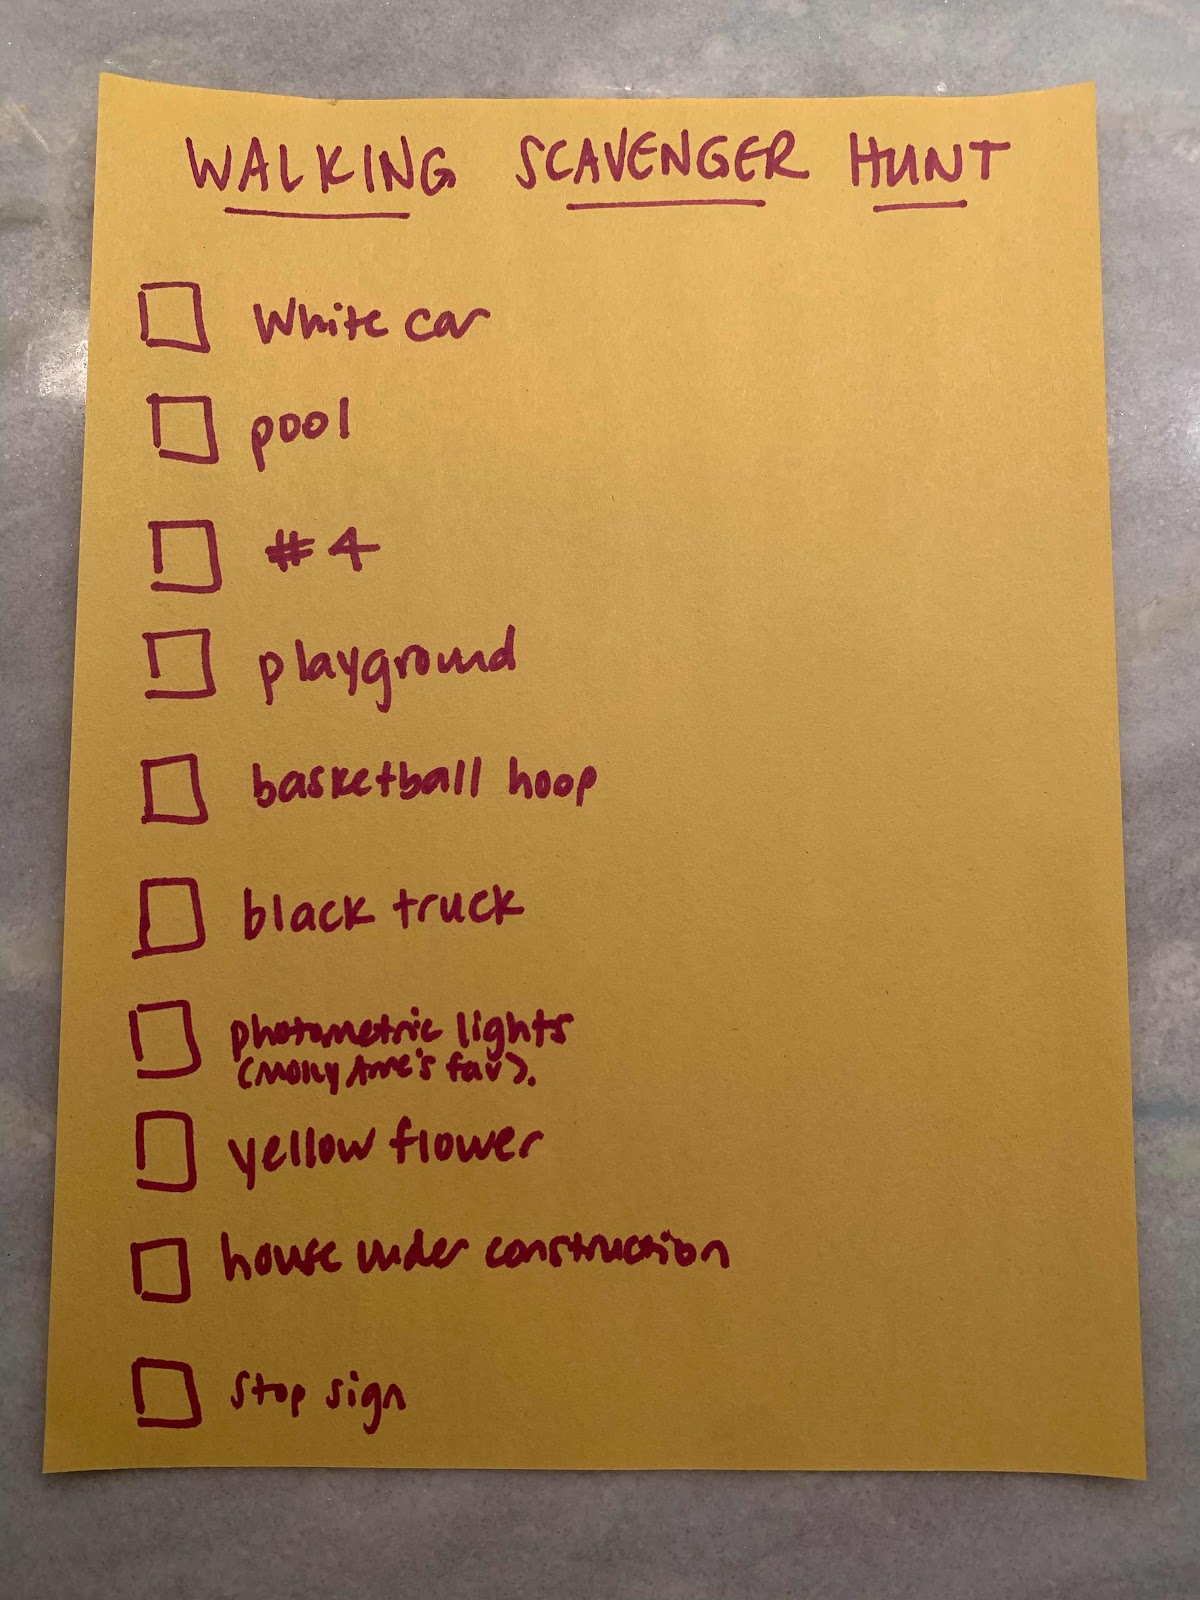 WALKING SCAVENGER HUNT
White car
pool
#4
playground
basketball hoop
black truck
photometric lights
(Molly Anne's fav).
yellow flower
house under construction
stop sign